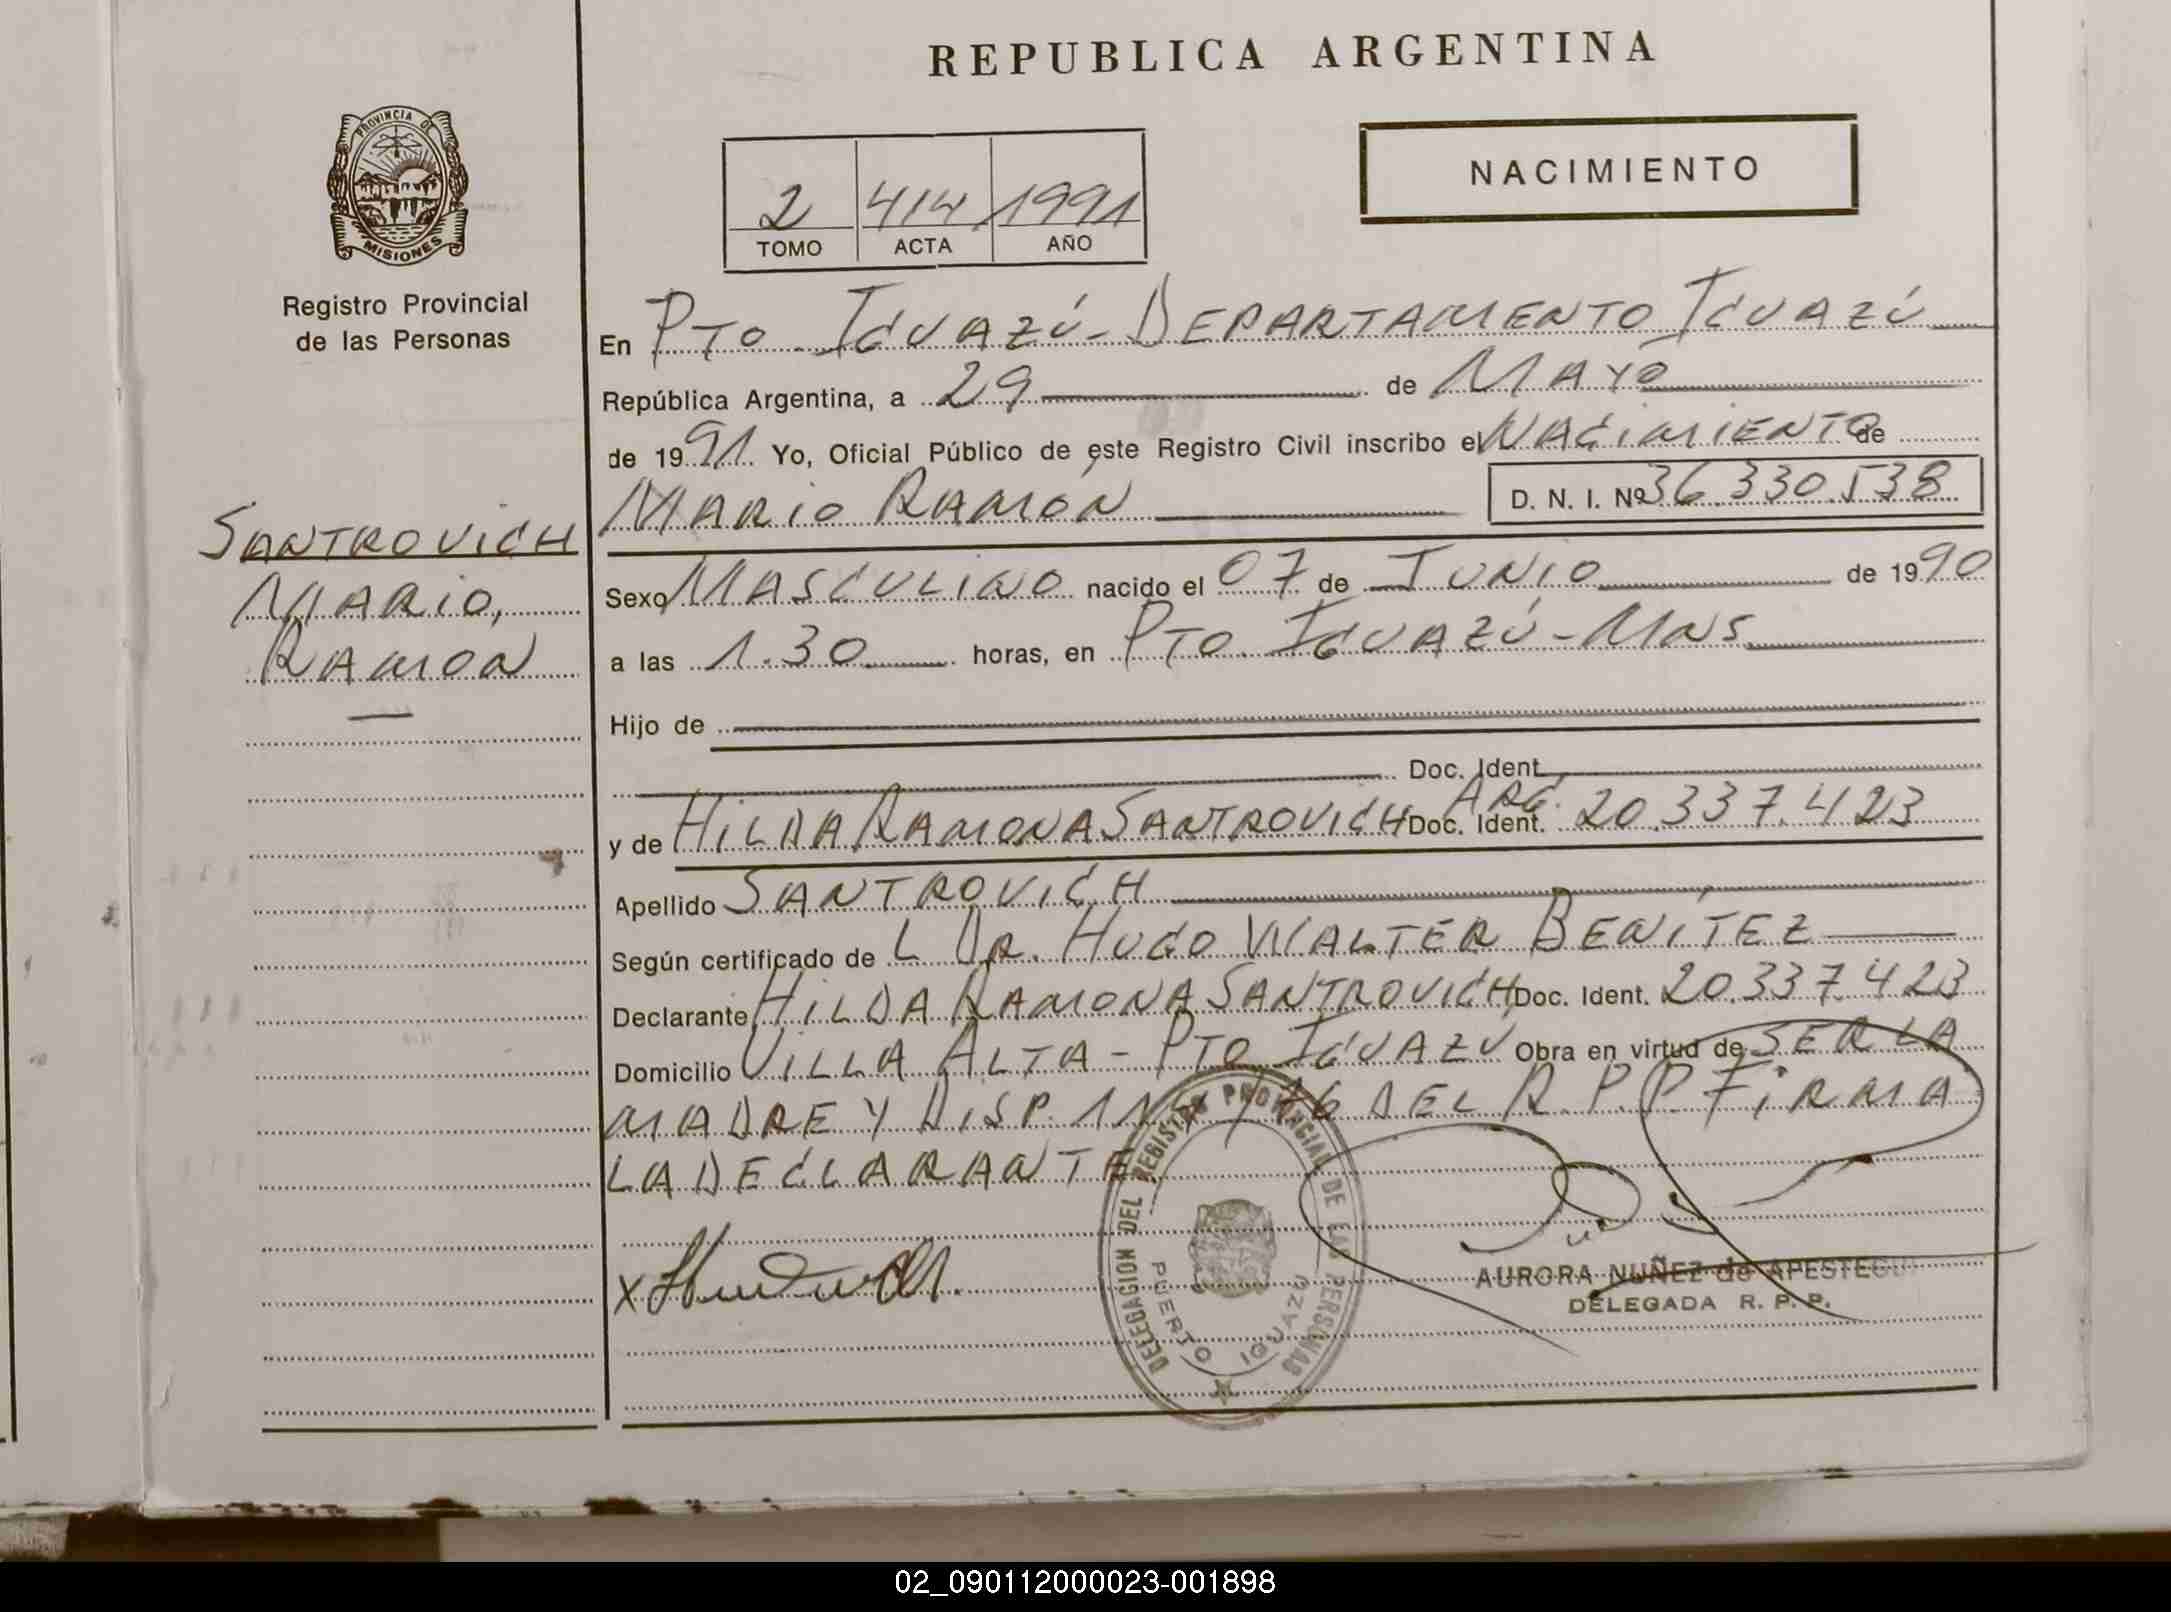 REPUBLICA ARGENTINA
PROVINCIA DE
MISIONES
Registro Provincial
de las Personas
2 414 1991
TOMO ACTA AÑO
NACIMIENTO
En PTO. IGUAZÚ - DEPARTAMENTO IGUAZÚ
República Argentina, a 29 de MAYO
de 1991. Yo, Oficial Público de este Registro Civil inscribo el NACIMIENTO de
MARIO RAMÓN D. N. I. Nº 36.330.538
SANTROVICH
MARIO,
RAMON
Sexo MASCULINO nacido el 07 de JUNIO de 1990
a las 1.30 horas, en PTO. IGUAZÚ - MNS
Hijo de
Doc. Ident.
y de HILDA RAMONA SANTROVICH Doc. Ident. ARG. 20.337.423
Apellido SANTROVICH
Según certificado de L DR. HUGO WALTER BENÍTEZ
Declarante HILDA RAMONA SANTROVICH Doc. Ident. 20.337.423
Domicilio VILLA ALTA - PTO IGUAZÚ Obra en virtud de SER LA
MADRE Y DISP. /76 DEL R.P.P. FIRMA
LA DECLARANTE.
DELEGACION DEL REGISTRO PROVINCIAL DE LAS PERSONAS
PUERTO IGUAZU
X
AURORA NUÑEZ de APESTEGUI
DELEGADA R. P. P.
02_090112000023-001898